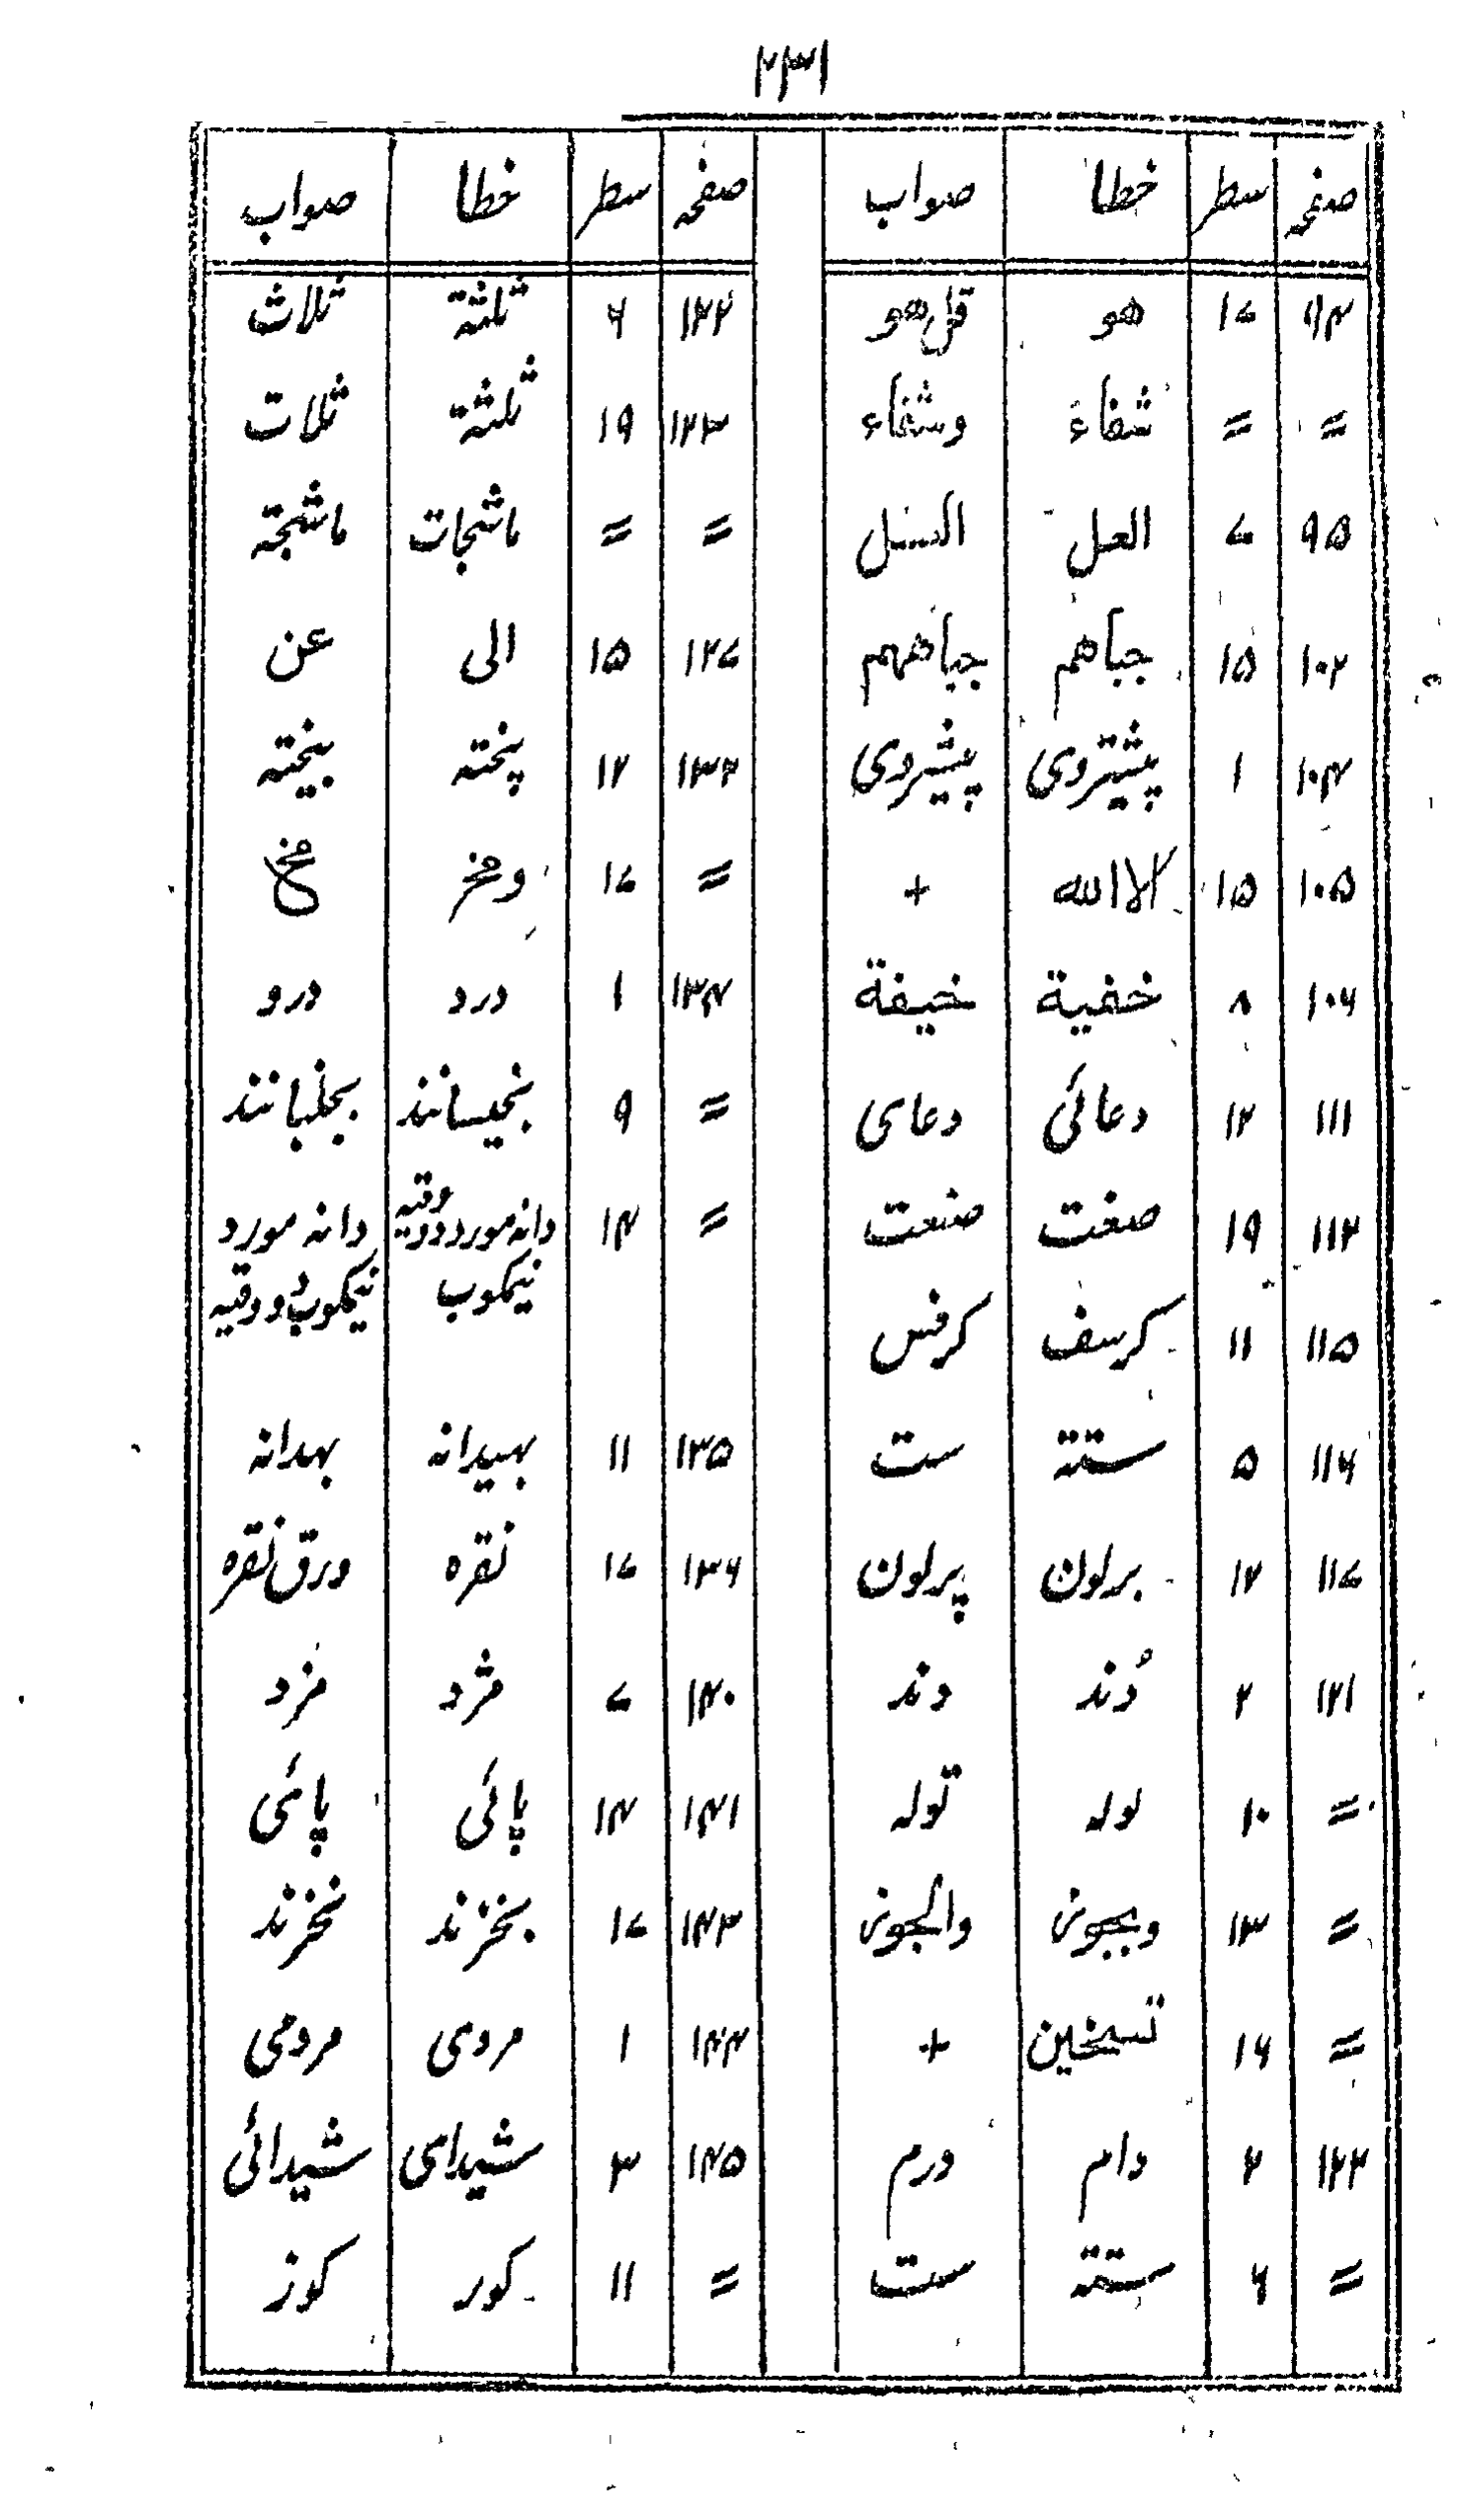 ۲۳۱
صفحہ سطر خطا صواب
۹۴ ۱۷ هو قل هو
= = شفاءً وشفاء
۹۵ ۷ العل السنبل
۱۰۲ ۱۵ جباهم جباههم
۱۰۴ ۱ پیشتروی پیشروی
۱۰۵ ۱۵ الا الله +
۱۰۶ ۸ خفية خيفة
۱۱۱ ۱۲ دعائی دعای
۱۱۲ ۱۹ صفت صنعت
۱۱۵ ۱۱ کرسف کرفس
۱۱۶ ۵ ستة ست
۱۱۷ ۱۲ برلون پرلون
۱۲۱ ۲ دُند دند
= ۱۰ لولہ تولہ
= ۱۳ وبجون والجون
= ۱۶ تسخین +
۱۲۲ ۲ دام ورم
= ۶ ستة ست
صفحہ سطر خطا صواب
۱۲۲ ۶ ثلثة ثلاث
۱۲۳ ۱۹ ثلثة ثلاث
= = ماشجات ماشجة
۱۲۷ ۱۵ الی عن
۱۳۲ ۱۲ پخته بیخته
= ۱۷ ومخر مخ
۱۳۴ ۱ درد درو
= ۹ بخیسانند بجنبانند
= ۱۴ دانه مورد دو وقیه دانه مورد
نیمکوب نیمکوب دو وقیه
۱۳۵ ۱۱ بهیدانه بهدانه
۱۳۶ ۱۷ نقره ورق نقره
۱۴۰ ۷ مژد مزد
۱۴۱ ۱۴ پائی پای
۱۴۳ ۱۷ بخزند نخزند
۱۴۴ ۱ مردی مردمی
۱۴۵ ۳ شیدای شیدائی
= ۱۱ کور کوز